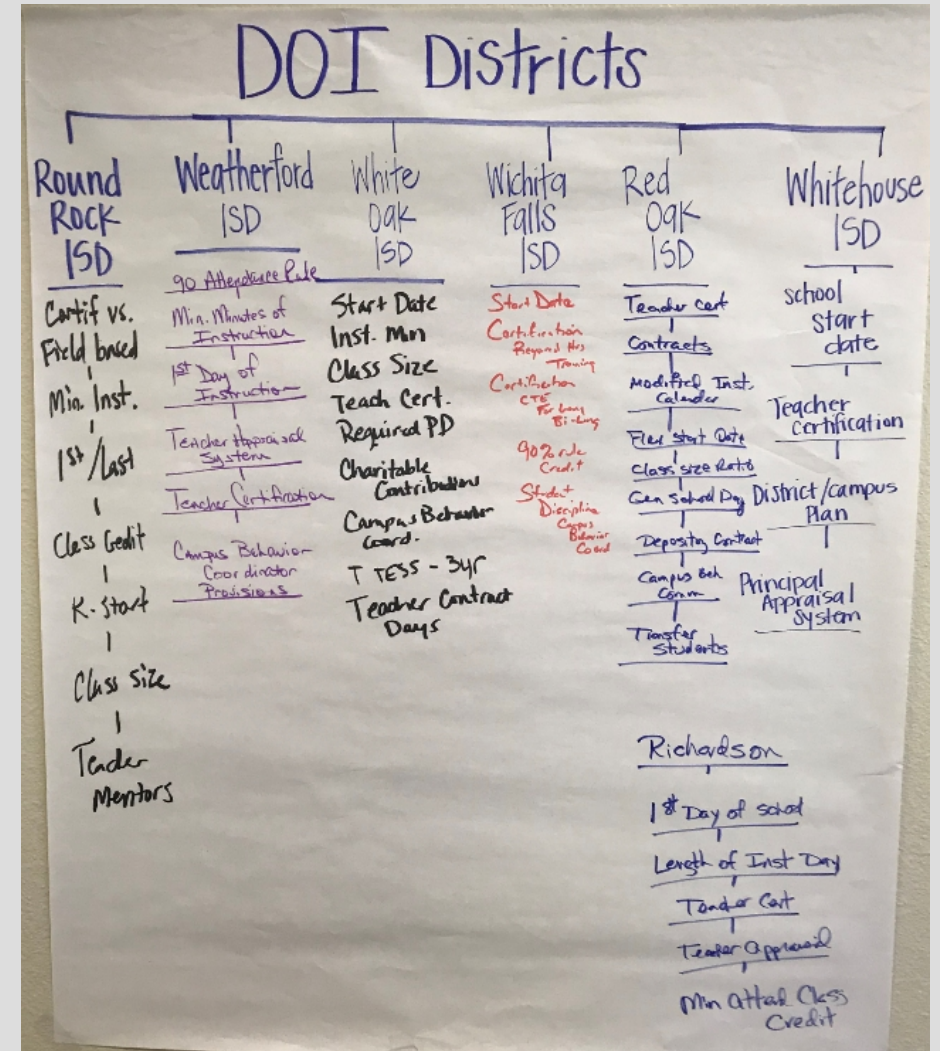 DOI Districts
Round
ROCK
ISD
Certif vs.
Field based
Min. Inst.
1st/Last
Class Credit
K-Start
Class Size
Teacher
Mentors
Weatherford
ISD
90 Attendance Rule
Min. Minutes of
Instruction
1st Day of
Instruction
Teacher Appraisal
System
Teacher Certification
Campus Behavior
Coordinator
Provisions
White
Oak
ISD
Start Date
Inst. Min
Class Size
Teach Cert.
Required PD
Charitable
Contributions
Campus Behavior
Coord.
T TESS - 3yr
Teacher Contract
Days
Wichita
Falls
ISD
Start Date
Certification
Beyond Hrs
Training
Certification
CTE
For Lang
Bi-Ling
90% rule
Credit
Student
Discipline
Campus
Behavior
Coord
Red
Oak
ISD
Teacher Cert
Contracts
Modified Inst.
Calender
Flex Start Date
Class size Ratio
Gen School Day
Depository Contract
Campus Beh
Comm
Transfer
Students
Whitehouse
ISD
school
start
date
Teacher
Certification
District/campus
Plan
Principal
Appraisal
System
Richardson
1st Day of school
Length of Inst Day
Teacher Cert
Teacher Appraisal
Min Attend Class
Credit